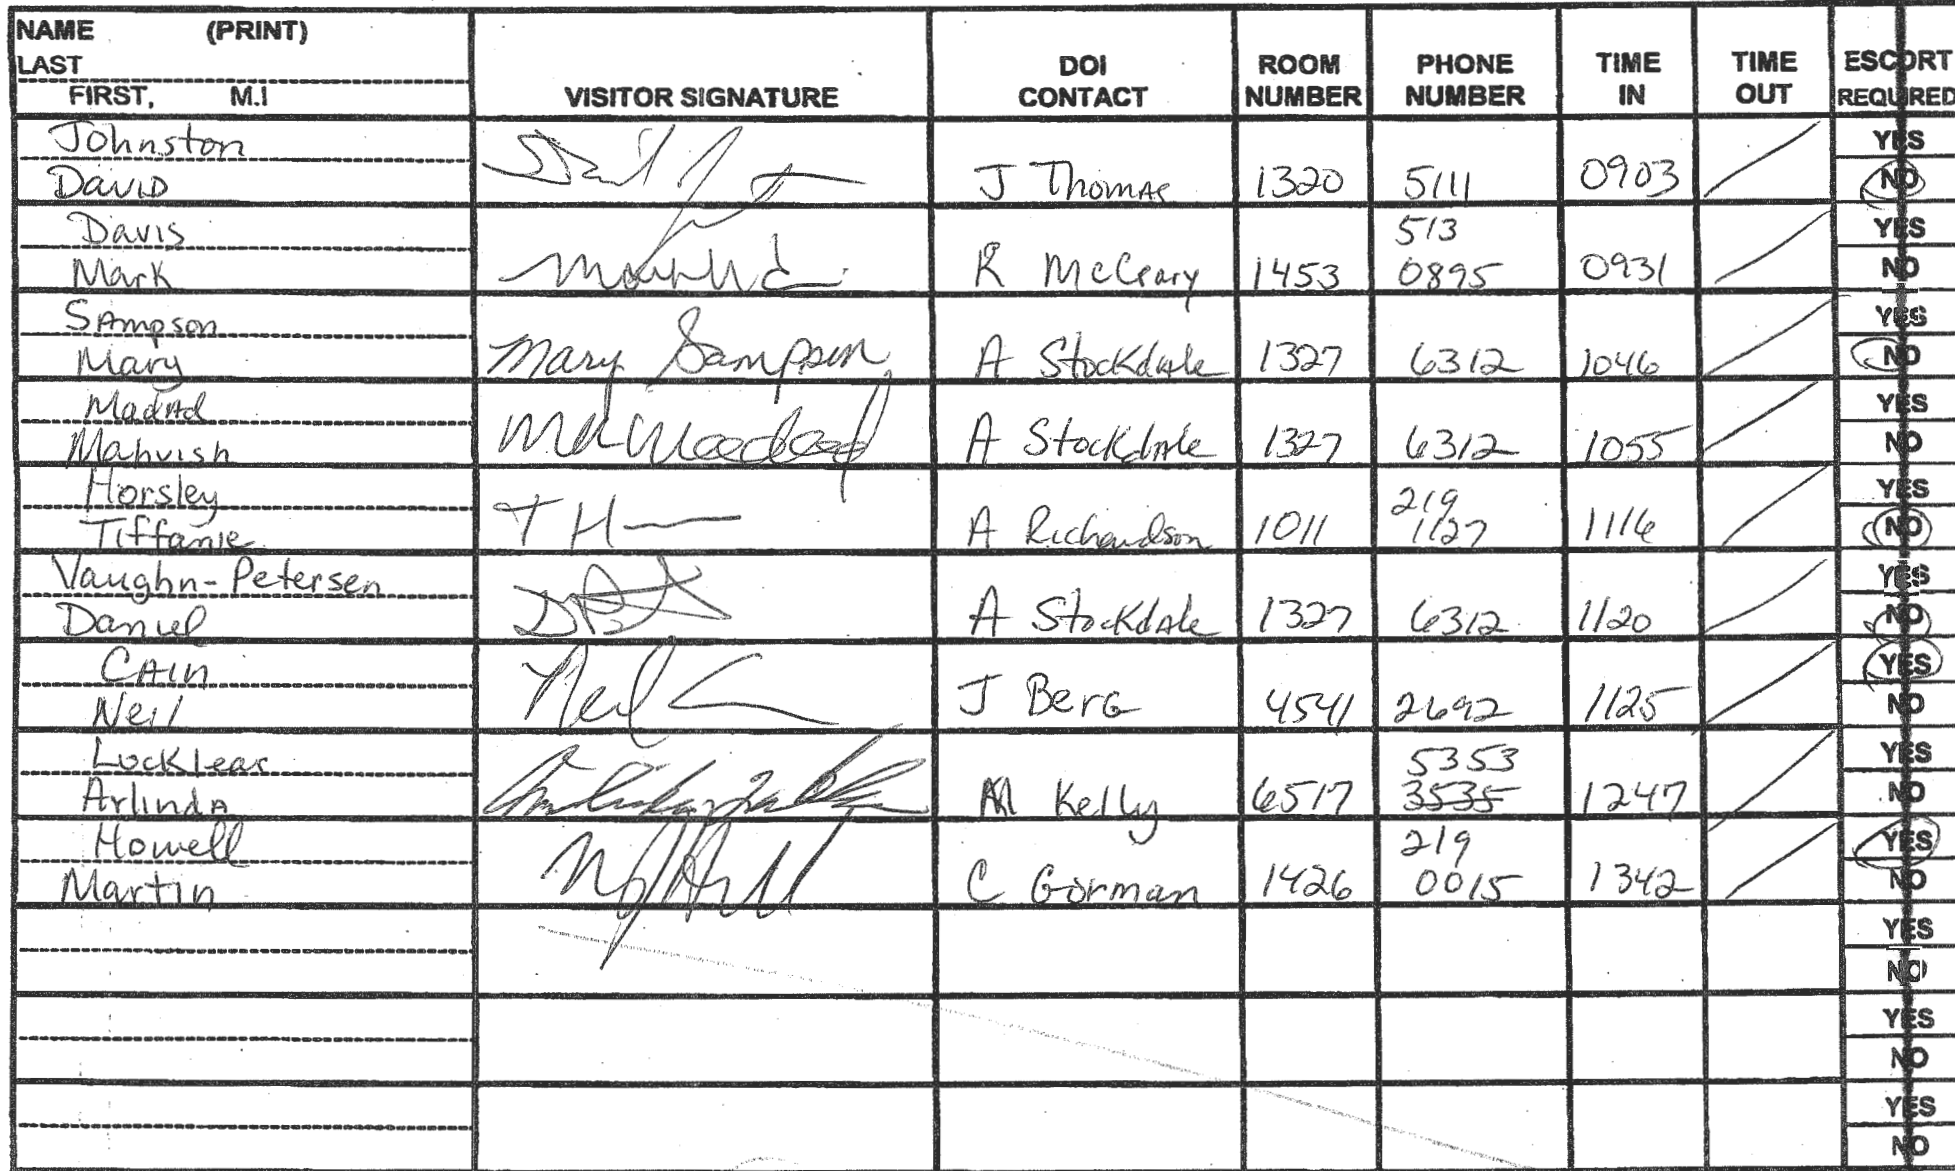 NAME (PRINT)
LAST
FIRST, M.I
VISITOR SIGNATURE
DOI CONTACT
ROOM NUMBER
PHONE NUMBER
TIME IN
TIME OUT
ESCORT REQUIRED
Johnston YES
David J Thomas 1320 5111 0903 NO
Davis 513 YES
Mark R McCrary 1453 0895 0931 NO
Sampson YES
Mary Mary Sampson A Stockdale 1327 6312 1046 NO
YES
Mahvish A Stockdale 1327 6312 1055 NO
Horsley 219 YES
Tiffanie T H A Richardson 1011 1127 1116 NO
Vaughn-Petersen YES
Daniel A Stockdale 1327 6312 1120 NO
Cain YES
Neil Neil J Berg 4541 2692 1125 NO
Locklear 5353 YES
Arlinda M Kelly 6517 3535 1247 NO
Howell 219 YES
Martin C Gorman 1426 0015 1342 NO
YES
NO
YES
NO
YES
NO